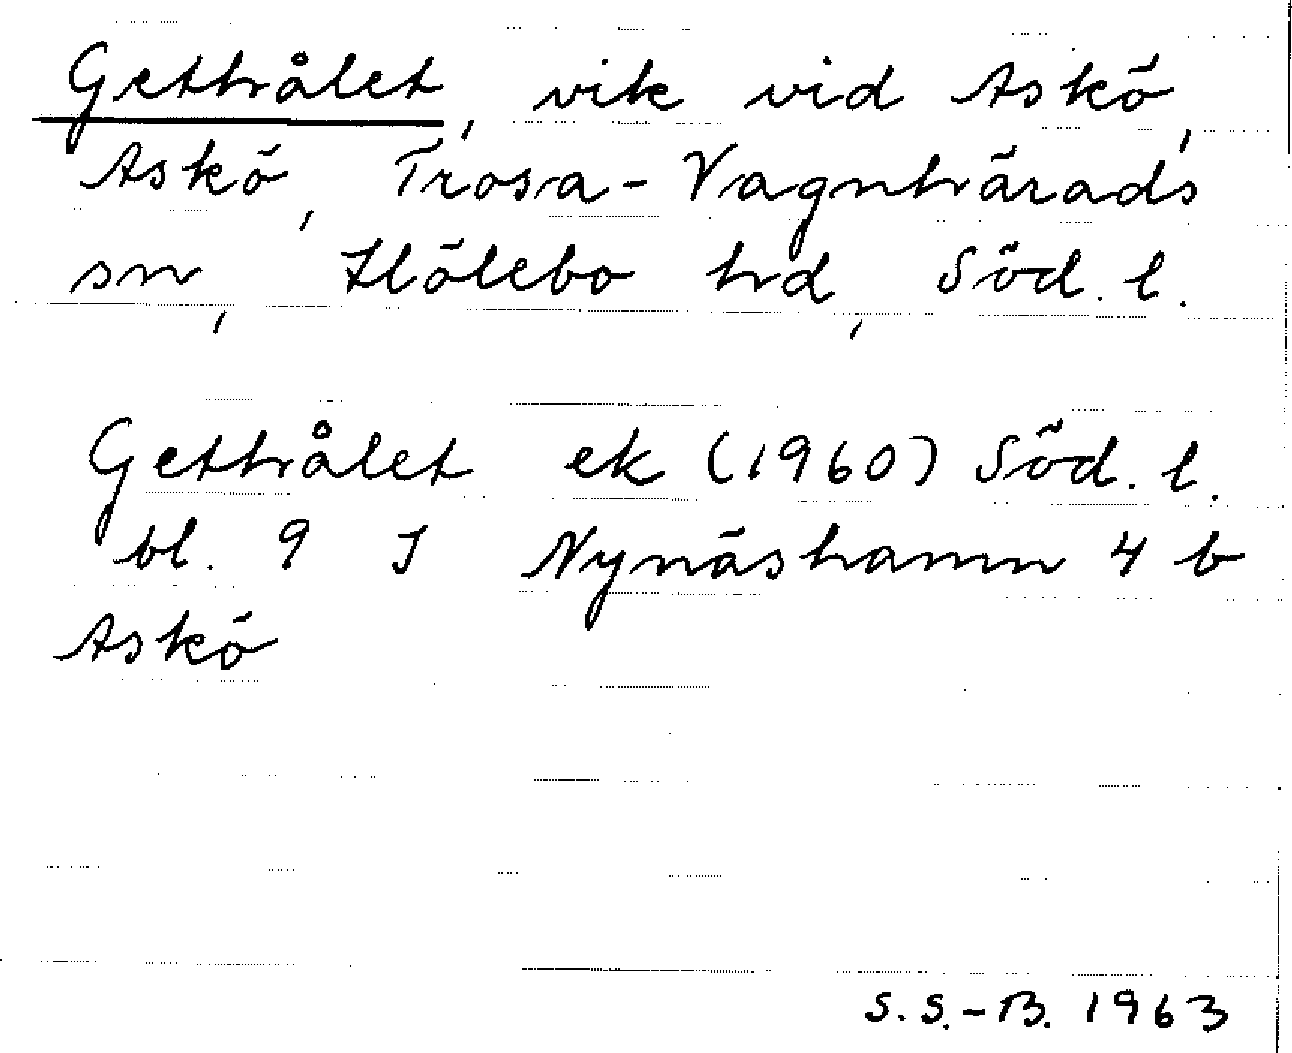 Gethålet, vik vid Askö,
Askö, Trosa-Vagnhärads
sn, Hölebo hd, Söd. l.
Gethålet ek (1960) Söd. l.
bl. 9 J Nynäshamn 4 b
Askö
S. S.-B. 1963